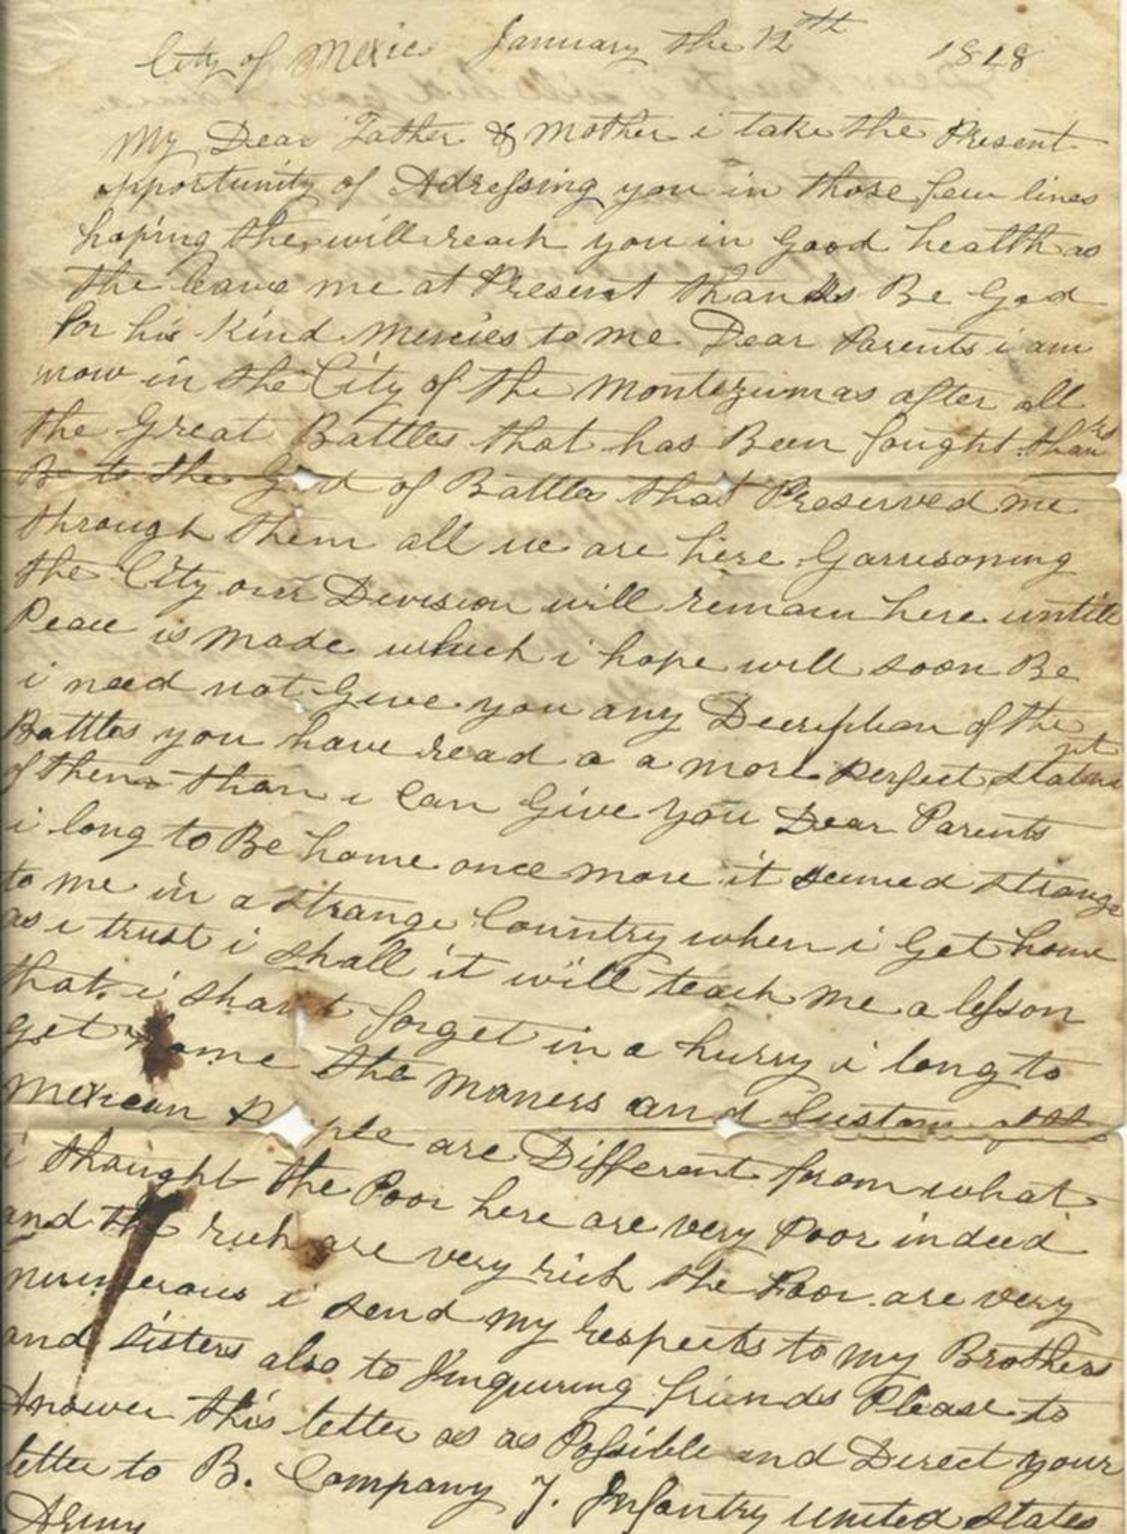 City of Mexico January the 12th 1818
My Dear Father & Mother i take the Present
opportunity of Adressing you in those few lines
hoping the will reach you in good health as
the leave me at Present thanks Be God
for his kind mercies to me Dear Parents i am
now in the City of the Montezumas after all
the Great Battles that has Been fought thanks
Be to the God of Battles that Preserved me
through them all we are here Garrisoning
the City our Devision will remain here untill
Peace is made which i hope will soon Be
i need not Give you any Decription of the
Battles you have read a a more Perfect statement
of them than i Can Give you Dear Parents
i long to Be home once more it seemed strange
to me in a strange Country when i Get home
as i trust i shall it will teach me a lesson
that i shant forget in a hurry i long to
get home the maners and Custom of the
Mexican People are Different from what
i thought the Poor here are very Poor indeed
and the rich are very rich the Poor are very
numerous i send my respects to my Brothers
and sisters also to Jinquiring friends Please to
Answer this letter as as Possible and Direct your
letter to B. Company 7. Infantry united States
Army